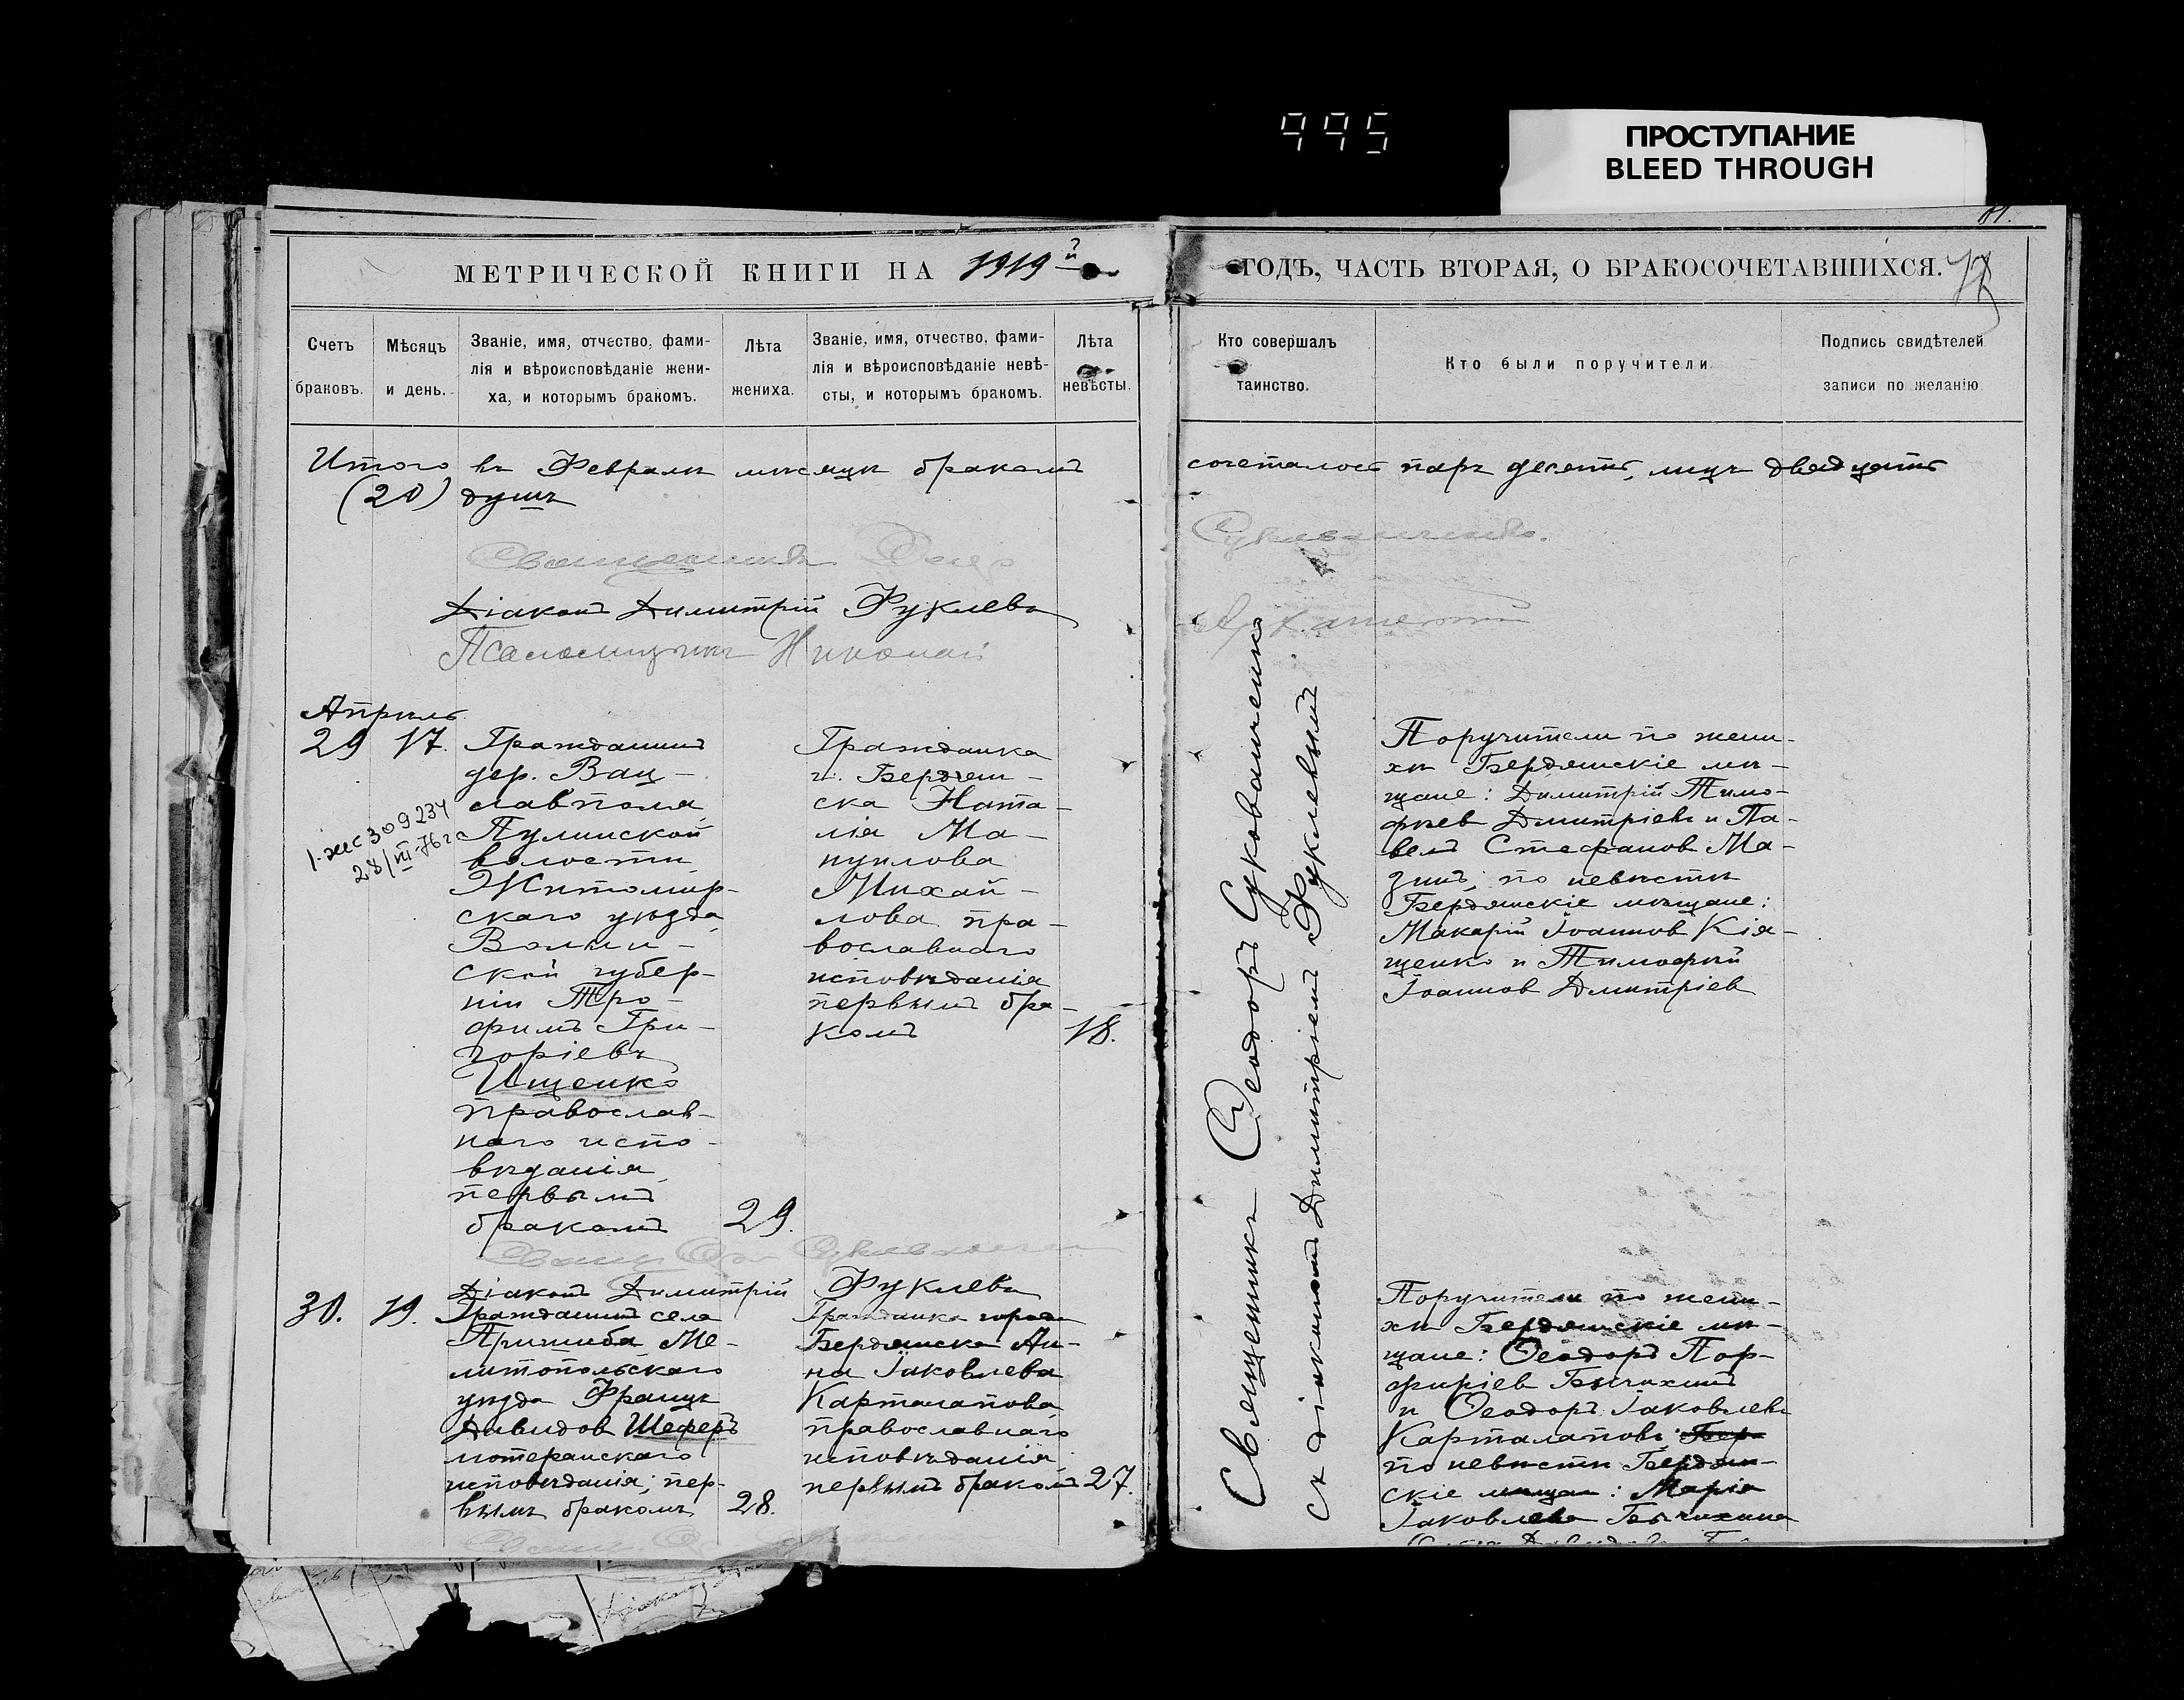 995
ПРОСТУПАНИЕ
BLEED THROUGH
81.
МЕТРИЧЕСКОЙ КНИГИ НА 1919й
ГОДЪ, ЧАСТЬ ВТОРАЯ, О БРАКОСОЧЕТАВШИХСЯ.
Счетъ
браковъ.
Мѣсяцъ
и день.
Званіе, имя, отчество, фами-
лія и вѣроисповѣданіе жени-
ха, и которымъ бракомъ.
Лѣта
жениха.
Званіе, имя, отчество, фами-
лія и вѣроисповѣданіе невѣ-
сты, и которымъ бракомъ.
Лѣта
невѣсты.
Кто совершалъ
таинство.
Кто были поручители
Подпись свидѣтелей
записи по желанію
Итого въ Февралѣ мѣсяцѣ бракомъ сочеталось паръ десять, лицъ двадцать
(20) душъ
Священникъ
Діаконъ Димитрій Фуклевъ
Псаломщикъ Николай
Апрѣль
29 17.
Гражданинъ
дер. Вац-
лавполя
Пулинской
волости
Житомир-
скаго уѣзда
Волын-
ской губер-
ніи Тро-
фимъ Гри-
горіевъ
Ищенко
православ-
наго испо-
вѣданія
первымъ
бракомъ
29.
1-жс 309234
28/III-76г
Гражданка
г. Бердян-
ска Ната-
лія Ма-
нуилова
Михай-
лова пра-
вославнаго
исповѣданія
первымъ бра-
комъ
18.
Священникъ Ѳеодоръ Суковаченко
съ діакономъ Димитріемъ Фуклевымъ
Поручители по жени-
хѣ Бердянскіе мѣ-
щане: Димитрій Тимо-
фѣев Дмитріевъ и Па-
велъ Стефанов Ма-
зинъ; по невѣстѣ
Бердянскіе мѣщане:
Макарій Іоаннов Кія-
щенко и Тимофѣй
Іоаннов Дмитріев
Діаконъ Димитрій Фуклевъ
30. 19.
Гражданинъ села
Пришиба Ме-
литопольскаго
уѣзда Францъ
Давидов Шеферъ
лютеранскаго
исповѣданія; пер-
вымъ бракомъ
28.
Гражданка города
Бердянска Ан-
на Іаковлева
Карталапова
православнаго
исповѣданія
первымъ бракомъ
27.
Поручители по жени-
хѣ Бердянскіе мѣ-
щане: Ѳеодоръ Пор-
фиріев Бычихинъ
и Ѳеодоръ Іаковлевъ
Карталаповъ;
по невѣстѣ Бердян-
скіе мѣщане: Марія
Іаковлева Бычихина